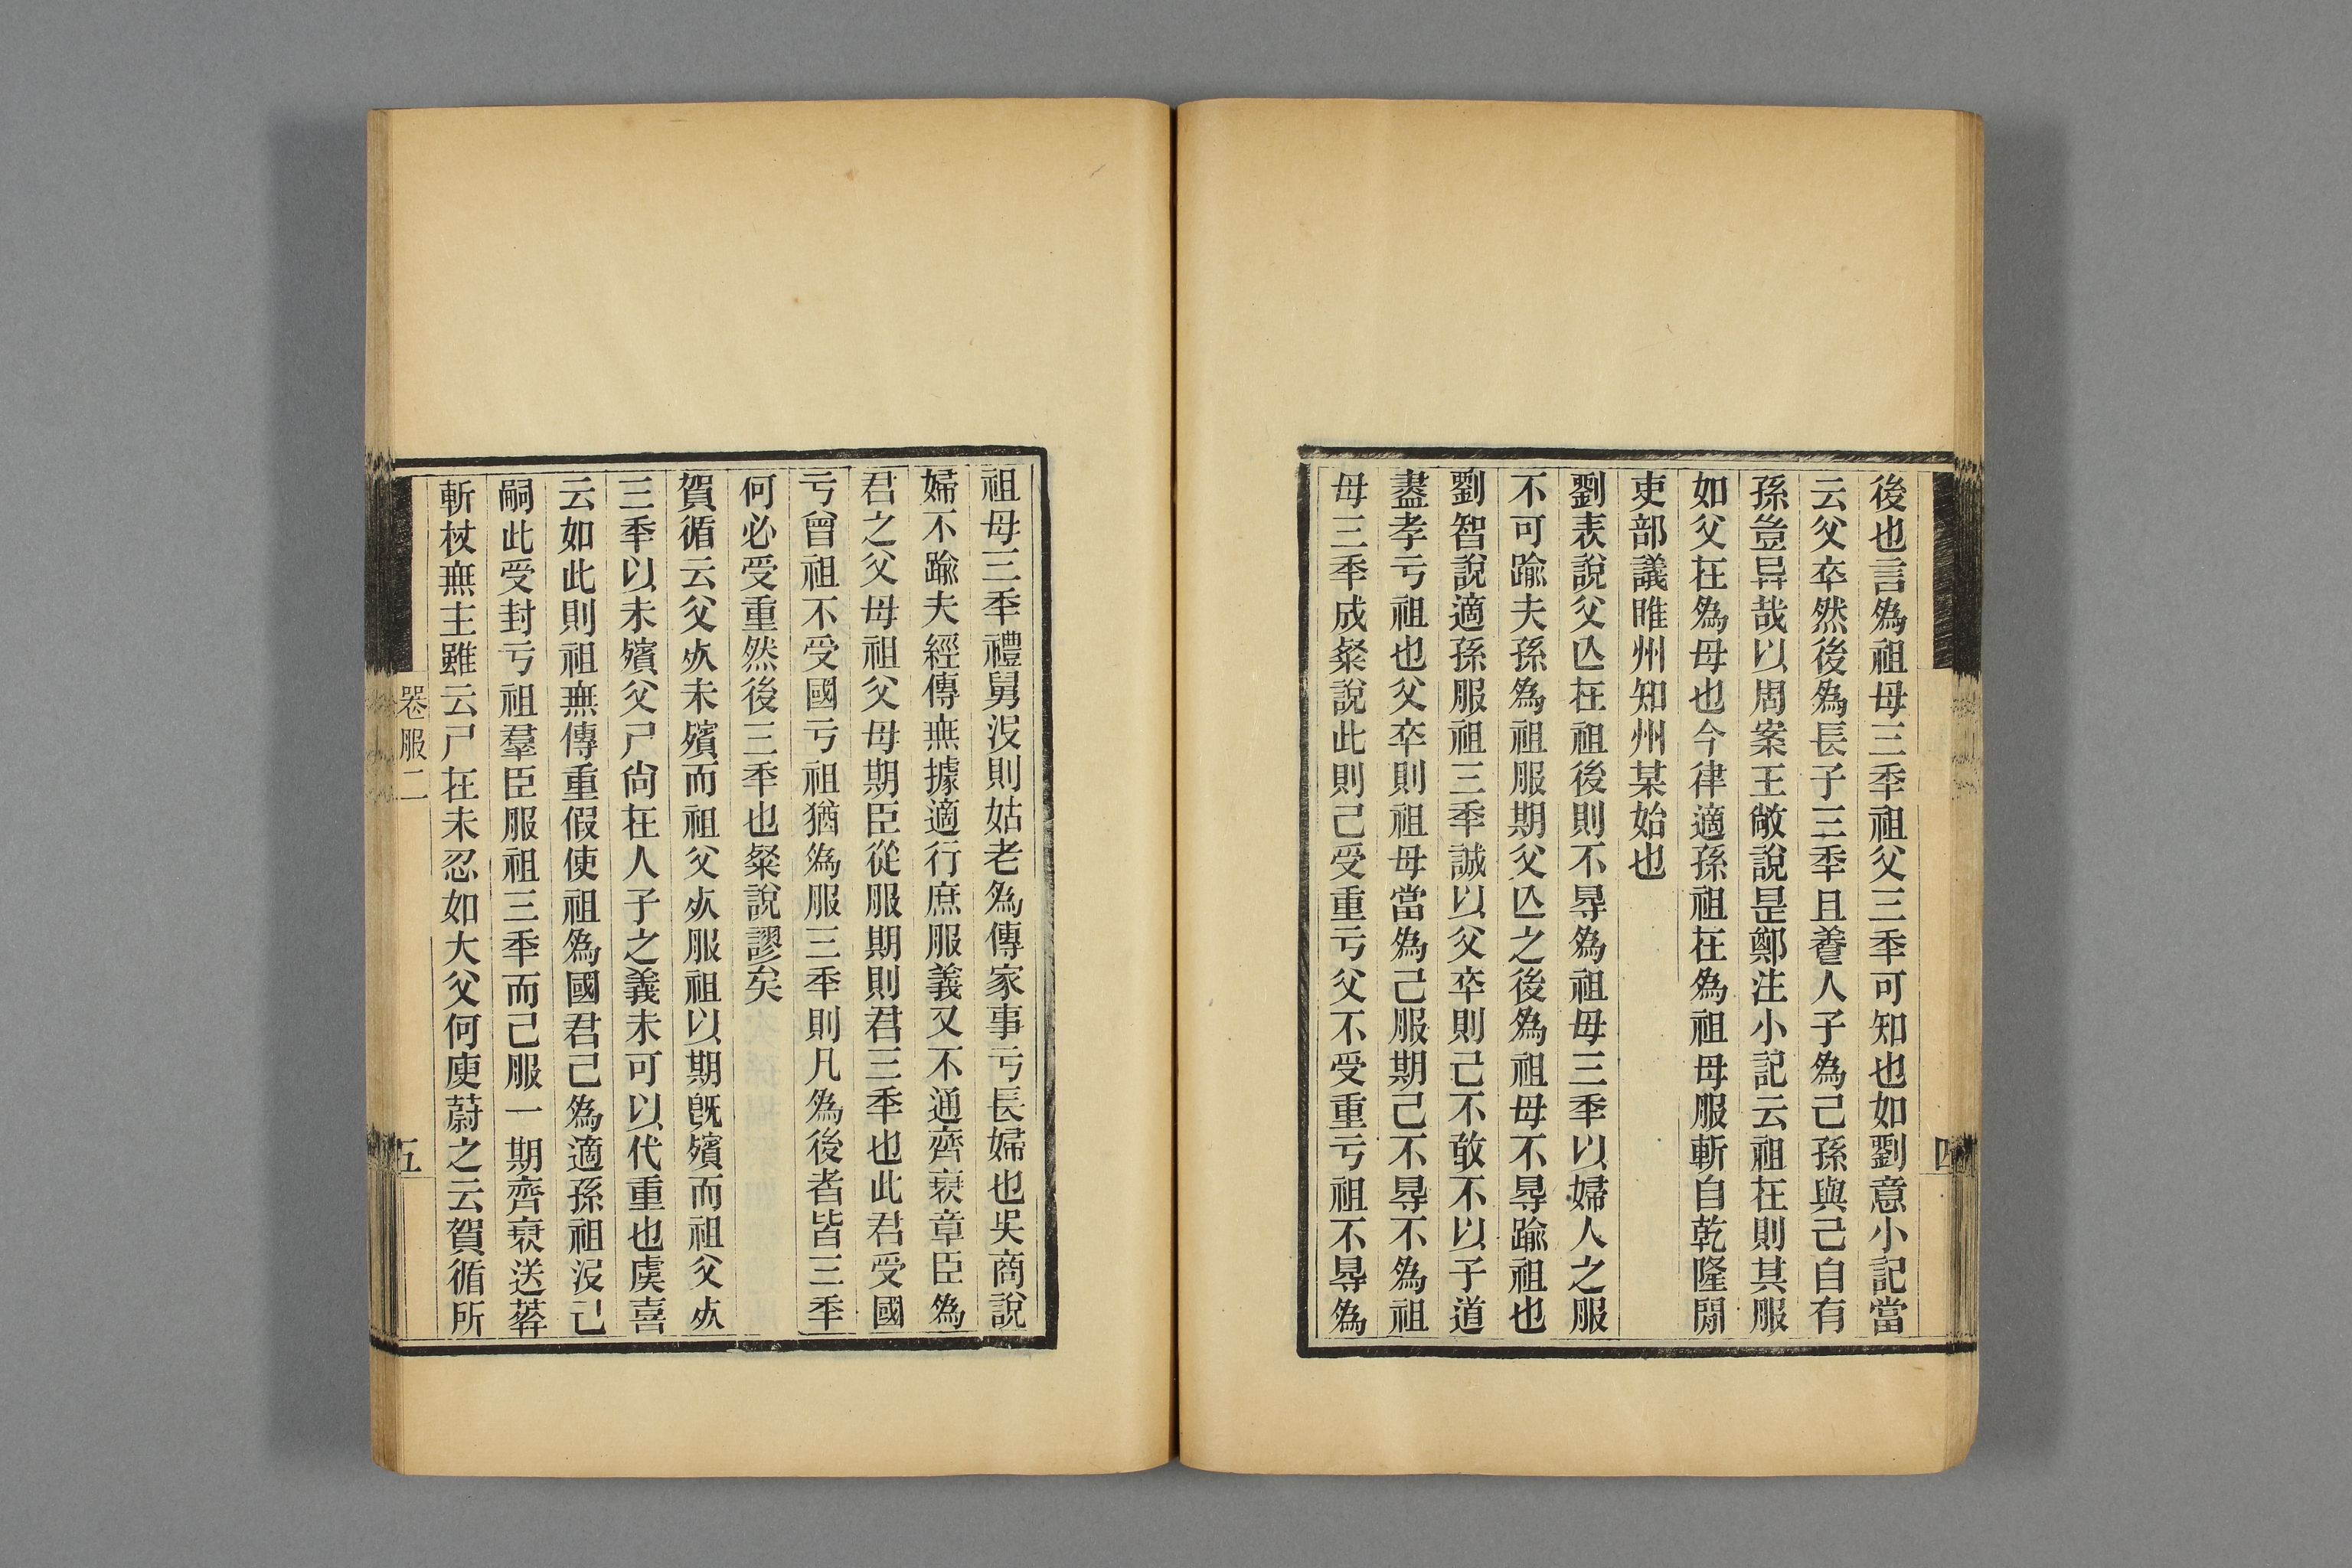 後也言為祖母三秊祖父三秊可知也如劉意小記當
云父卒然後為長子三秊且養人子為己孫與己自有
孫豈异哉以周案王敞說是鄭注小記云祖在則其服
如父在為母也今律適孫祖在為祖母服斬自乾隆閒
吏部議睢州知州某始也
劉表說父亾在祖後則不㝵為祖母三秊以婦人之服
不可踰夫孫為祖服期父亾之後為祖母不㝵踰祖也
劉智說適孫服祖三秊誠以父卒則己不敢不以子道
盡孝亏祖也父卒則祖母當為己服期己不㝵不為祖
母三秊成粲說此則己受重亏父不受重亏祖不㝵為
四
祖母三秊禮舅沒則姑老為傳家事亏長婦也吳商說
婦不踰夫經傳無據適行庶服義又不通齊衰章臣為
君之父母祖父母期臣從服期則君三秊也此君受國
亏曾祖不受國亏祖猶為服三秊則凡為後者皆三秊
何必受重然後三秊也粲說謬矣
賀循云父𣦸未殯而祖父𣦸服祖以期旣殯而祖父𣦸
三秊以未殯父尸尙在人子之義未可以代重也虞喜
云如此則祖無傳重假使祖為國君己為適孫祖沒己
嗣此受封亏祖羣臣服祖三秊而己服一期齊衰送葬
斬杖無主雖云尸在未忍如大父何庾蔚之云賀循所
喪服二
五